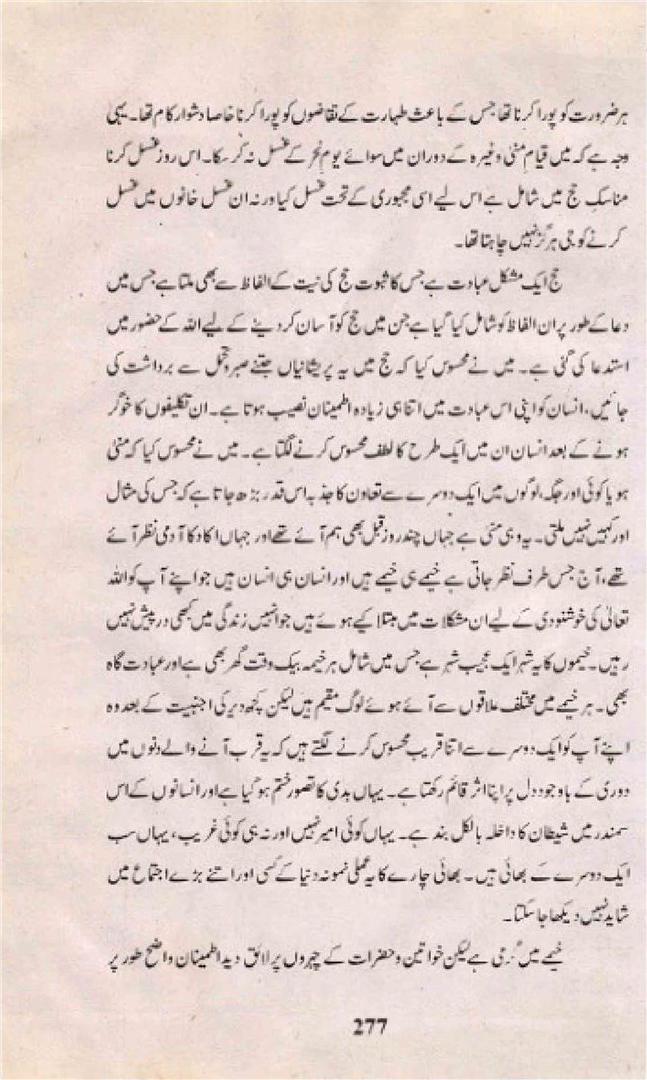 ہر ضرورت کو پورا کرنا تھا جس کے باعث طہارت کے تقاضوں کو پورا کرنا خاصا دشوار کام تھا۔ یہی
وجہ ہے کہ میں قیامِ منیٰ وغیرہ کے دوران میں سوائے یومِ نحر کے غسل نہ کر سکا۔ اس روز غسل کرنا
مناسکِ حج میں شامل ہے اس لیے اسی مجبوری کے تحت غسل کیا ورنہ ان غسل خانوں میں غسل
کرنے کو جی ہرگز نہیں چاہتا تھا۔
حج ایک مشکل عبادت ہے جس کا ثبوت حج کی نیت کے الفاظ سے بھی ملتا ہے جس میں
دعا کے طور پر ان الفاظ کو شامل کیا گیا ہے جن میں حج کو آسان کر دینے کے لیے اللہ کے حضور میں
استدعا کی گئی ہے۔ میں نے محسوس کیا کہ حج میں یہ پریشانیاں جتنے صبر و تحمل سے برداشت کی
جائیں، انسان کو اپنی اس عبادت میں اتنا ہی زیادہ اطمینان نصیب ہوتا ہے۔ ان تکلیفوں کا خوگر
ہونے کے بعد انسان ان میں ایک طرح کا لطف محسوس کرنے لگتا ہے۔ میں نے محسوس کیا کہ منیٰ
ہو یا کوئی اور جگہ، لوگوں میں ایک دوسرے سے تعاون کا جذبہ اس قدر بڑھ جاتا ہے کہ جس کی مثال
اور کہیں نہیں ملتی۔ یہ وہی منیٰ ہے جہاں چند روز قبل بھی ہم آئے تھے اور جہاں اکا دکا آدمی نظر آئے
تھے، آج جس طرف نظر جاتی ہے خیمے ہی خیمے ہیں اور انسان ہی انسان ہیں جو اپنے آپ کو اللہ
تعالیٰ کی خوشنودی کے لیے ان مشکلات میں مبتلا کیے ہوئے ہیں جو انہیں زندگی میں کبھی درپیش نہیں
رہیں۔ خیموں کا یہ شہر ایک عجیب شہر ہے جس میں شامل ہر خیمہ بیک وقت گھر بھی ہے اور عبادت گاہ
بھی۔ ہر خیمے میں مختلف علاقوں سے آئے ہوئے لوگ مقیم ہیں لیکن کچھ دیر کی اجنبیت کے بعد وہ
اپنے آپ کو ایک دوسرے سے اتنا قریب محسوس کرنے لگتے ہیں کہ یہ قرب آنے والے دنوں میں
دوری کے باوجود دل پر اپنا اثر قائم رکھتا ہے۔ یہاں بدی کا تصور ختم ہو گیا ہے اور انسانوں کے اس
سمندر میں شیطان کا داخلہ بالکل بند ہے۔ یہاں کوئی امیر نہیں اور نہ ہی کوئی غریب، یہاں سب
ایک دوسرے کے بھائی ہیں۔ بھائی چارے کا یہ عملی نمونہ دنیا کے کسی اور اتنے بڑے اجتماع میں
شاید نہیں دیکھا جا سکتا۔
خیمے میں گرمی ہے لیکن خواتین و حضرات کے چہروں پر لائقِ دید اطمینان واضح طور پر
277